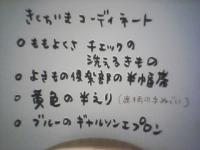 きくちいま コーディネート
○ ももよぐさ チェックの
洗えるきもの
○ よきもの倶楽部の半幅帯
○ 黄色の半えり(唐桟の手ぬぐい)
○ ブルーのギャルソンエプロン